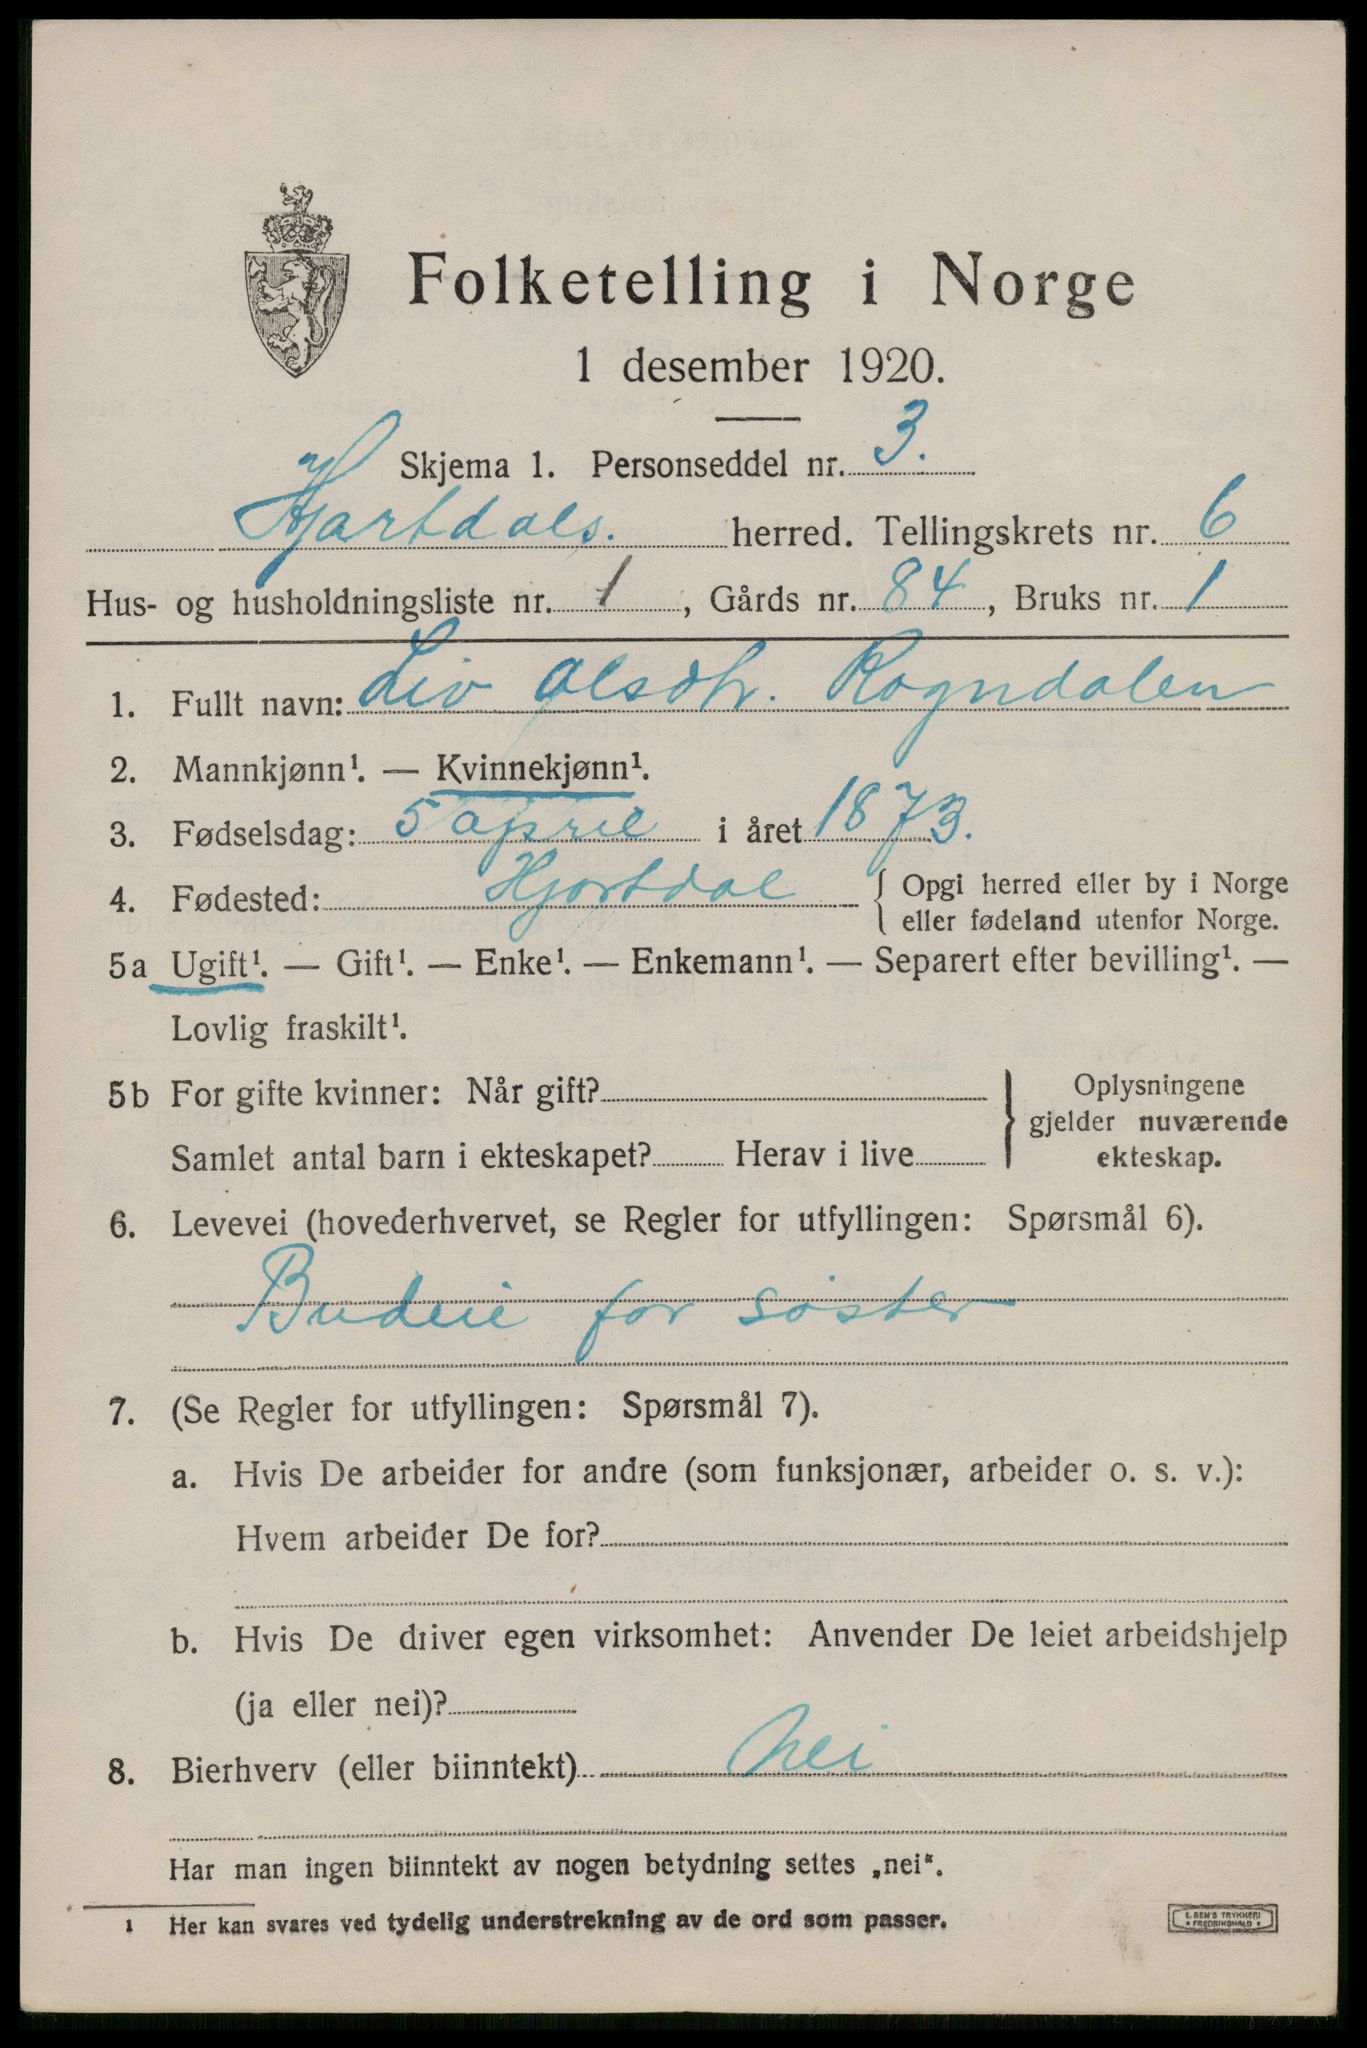 Folketelling i Norge
1 desember 1920.
Skjema 1. Personseddel nr. 3.
Hjartdals. herred. Tellingskrets nr. 6
Hus- og husholdningsliste nr. 1, Gårds nr. 84, Bruks nr. 1
1. Fullt navn: Liv Olsdtr. Rogndalen
2. Mannkjønn¹. — Kvinnekjønn¹.
3. Fødselsdag: 5 april i året 1873.
4. Fødested: Hjartdal { Opgi herred eller by i Norge
eller fødeland utenfor Norge.
5a Ugift¹. — Gift¹. — Enke¹. — Enkemann¹. — Separert efter bevilling¹. —
Lovlig fraskilt¹.
5b For gifte kvinner: Når gift? } Oplysningene
gjelder nuværende
Samlet antal barn i ekteskapet? Herav i live ekteskap.
6. Levevei (hovederhvervet, se Regler for utfyllingen: Spørsmål 6).
Budeie for søster
7. (Se Regler for utfyllingen: Spørsmål 7).
a. Hvis De arbeider for andre (som funksjonær, arbeider o. s. v.):
Hvem arbeider De for?
b. Hvis De driver egen virksomhet: Anvender De leiet arbeidshjelp
(ja eller nei)?
8. Bierhverv (eller biinntekt) Nei
Har man ingen biinntekt av nogen betydning settes „nei".
1 Her kan svares ved tydelig understrekning av de ord som passer.
E. SEM'S TRYKKERI
* FREDRIKSHALD *